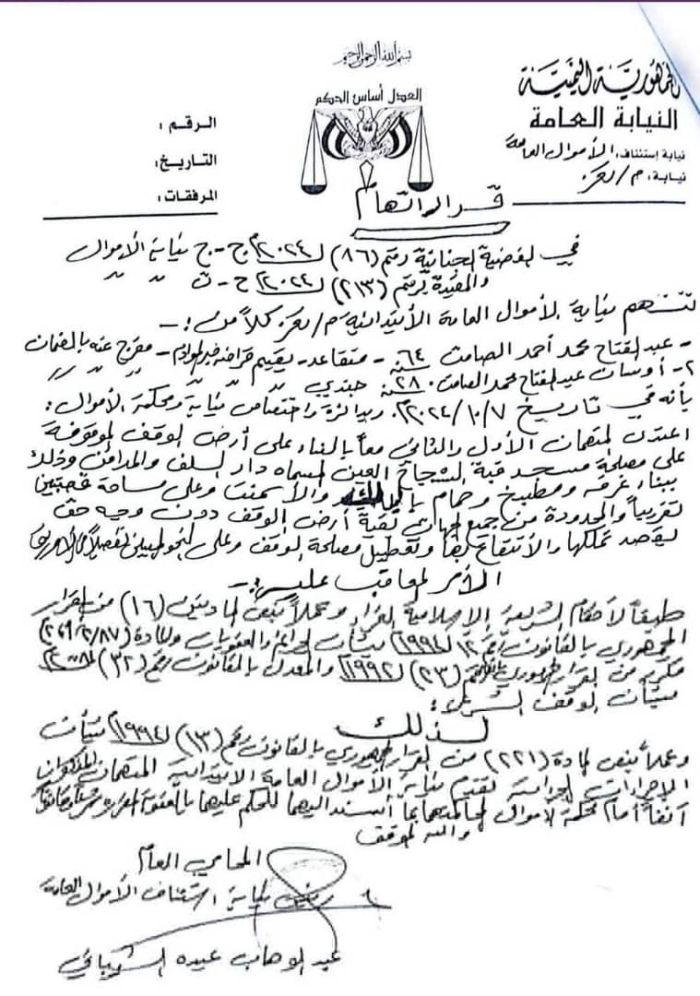 بسم الله الرحمن الرحيم
الجمهورية اليمنية
النيابة العامة
نيابة إستئناف: الأموال العامة
نيابة: م/تعز
العدل أساس الحكم
الرقم :
التاريخ :
المرفقات :
قرار اتهام
في القضية الجنائية رقم (٨٦) لـ ٢٠٢٤م ج-ج نيابة الأموال
والمقيدة برقم (٢١٣) لـ ٢٠٢٤م ح-ت " "
تتهم نيابة الأموال العامة الأبتدائية م/تعز كلاً من :-
- عبدالفتاح محمد أحمد الصامت ٦٤ سنة - متقاعد - يقيم مفرج عنه بالضمان
٢- أوسان عبدالفتاح محمد الصامت ٢٨ سنة جندي " " " "
بأنه في تاريخ ٢٠٢٤/١٠/٧م وبدائرة اختصاص نيابة ومحكمة الأموال :
اعتدى المتهمان الأول والثاني معاً بالبناء على أرض الوقف الموقوفة
على مصلحة مسجد قبة العين المسماه دار السلف والمدافن وذلك
ببناء غرفة ومطبخ وحمام والأسمنت وعلى مساحة قصبتين
تقريباً والمحدودة من جميع الجهات بقية أرض الوقف دون وجه حق
بقصد تملكها والأنتفاع بها وتعطيل مصلحة الوقف وعلى النحو المبين تفصيلاً
الأمر المعاقب عليه :-
طبقاً لأحكام الشريعة الإسلامية الغراء وعملاً بنص المادتين (١٦) من القرار
الجمهوري بالقانون رقم ١٢ لـ ١٩٩٤م بشأن الجرائم والعقوبات والمادة (٨٧/٢/
مكرر من القرار الجمهوري بالقانون رقم (٢٣) لـ ١٩٩٢م والمعدل بالقانون رقم (٣٢) لـ ٢٠٠٨م
بشأن الوقف الشرعي :
لذلك
وعملاً بنص المادة (٢٢١) من القرار الجمهوري بالقانون رقم (١٣) لـ ١٩٩٤م بشأن
الإجراءات الجزائية تقدم نيابة الأموال العامة الابتدائية المتهمان المذكوران
آنفاً أمام محكمة الأموال لمحاكمتهما بما أسند اليهما للحكم عليهما بالعقوبة المقررة شرعاً وقانوناً
والله الموفق
المحامي العام
رئيس نيابة استئناف الأموال العامة
عبدالوهاب عبده الشيباني